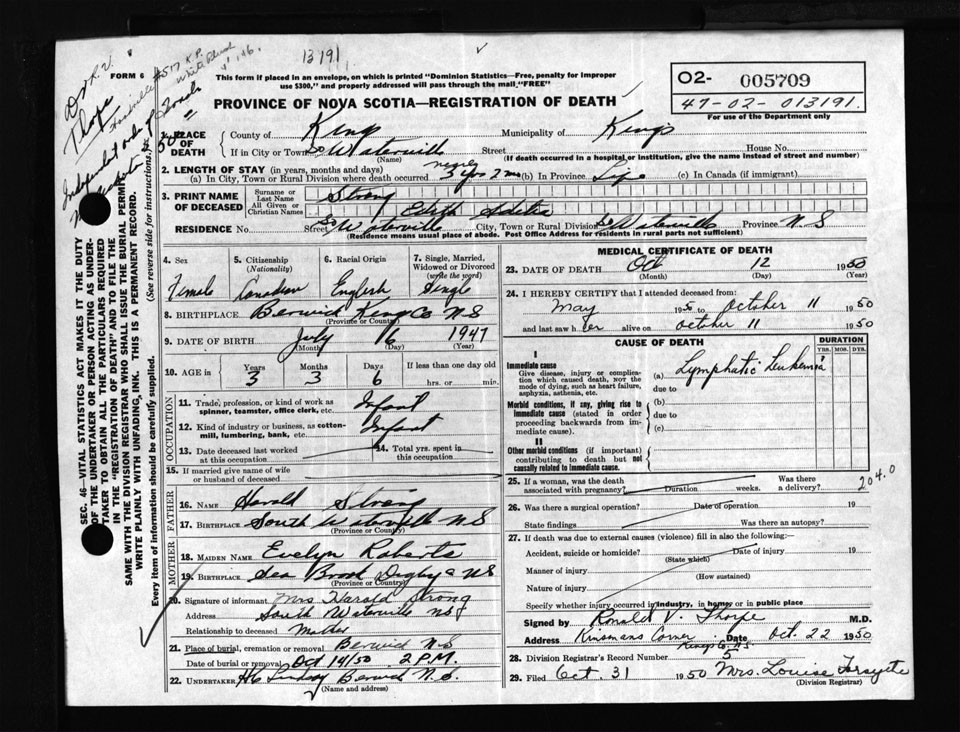 13191
FORM 6
This form if placed in an envelope, on which is printed "Dominion Statistics—Free, penalty for improper
use $300," and properly addressed will pass through the mail "FREE"
O2- 005709
47-02-013191.
For use of the Department only
PROVINCE OF NOVA SCOTIA—REGISTRATION OF DEATH
Dr R. V.
Thorpe
Independent order of
SEC. 46—VITAL STATISTICS ACT MAKES IT THE DUTY
OF THE UNDERTAKER OR PERSON ACTING AS UNDER-
TAKER TO OBTAIN ALL THE PARTICULARS REQUIRED
IN THE "REGISTRATION OF DEATH" AND TO FILE THE
SAME WITH THE DIVISION REGISTRAR WHO SHALL ISSUE THE BURIAL PERMIT.
WRITE PLAINLY WITH UNFADING INK. THIS IS A PERMANENT RECORD.
Every item of information should be carefully supplied. (See reverse side for instructions.)
PLACE OF DEATH
County of Kings Municipality of Kings
If in City or Town So Waterville Street House No.
(Name) (If death occurred in a hospital or institution, give the name instead of street and number)
2. LENGTH OF STAY (in years, months and days)
(a) In City, Town or Rural Division where death occurred nearly 3 yrs 2 mo (b) In Province Life (c) In Canada (if immigrant)
3. PRINT NAME OF DECEASED
Surname or Last Name Strong
All Given or Christian Names Edith
RESIDENCE No. Street So Waterville City, Town or Rural Division So Waterville Province N S
(Residence means usual place of abode. Post Office Address for residents in rural parts not sufficient)
4. Sex 5. Citizenship (Nationality) 6. Racial Origin 7. Single, Married, Widowed or Divorced (write the word)
Female Canadian English Single
8. BIRTHPLACE Berwick Kings Co N S
(Province or Country)
9. DATE OF BIRTH July 16 1947
(Month) (Day) (Year)
10. AGE in Years Months Days If less than one day old
3 3 6 hrs. or min.
OCCUPATION
11. Trade, profession, or kind of work as spinner, teamster, office clerk, etc. Infant
12. Kind of industry or business, as cotton-mill, lumbering, bank, etc. Infant
13. Date deceased last worked at this occupation 14. Total yrs. spent in this occupation
15. If married give name of wife or husband of deceased
FATHER
16. NAME Harold Strong
17. BIRTHPLACE South Waterville N S
(Province or Country)
MOTHER
18. MAIDEN NAME Evelyn Roberts
19. BIRTHPLACE Sea Brook Digby Co N S
(Province or Country)
20. Signature of informant Mrs Harold Strong
Address South Waterville NS
Relationship to deceased Mother
21. Place of burial, cremation or removal Berwick N.S
Date of burial or removal Oct 14/50 2 P.M.
22. UNDERTAKER Lindsay Berwick N.S.
(Name and address)
MEDICAL CERTIFICATE OF DEATH
23. DATE OF DEATH Oct 12 1950
(Month) (Day) (Year)
24. I HEREBY CERTIFY that I attended deceased from:
May 195 to October 11 1950
and last saw her alive on October 11 1950
CAUSE OF DEATH DURATION
YRS. MOS. DYS.
I
Immediate cause
Give disease, injury or complication which caused death, not the mode of dying, such as heart failure, asphyxia, asthenia, etc.
(a) Lymphatic Leukemia
due to
Morbid conditions, if any, giving rise to immediate cause (stated in order proceeding backwards from immediate cause).
(b)
due to
(c)
II
Other morbid conditions (if important) contributing to death but not causally related to immediate cause.
25. If a woman, was the death associated with pregnancy? Duration weeks. Was there a delivery? 204.0
26. Was there a surgical operation? Date of operation 19
State findings Was there an autopsy?
27. If death was due to external causes (violence) fill in also the following:
Accident, suicide or homicide? Date of injury 19
(State which)
Manner of injury
(How sustained)
Nature of injury
Specify whether injury occurred in industry, in home, or in public place
Signed by Ronald V. Thorpe M.D.
Address Kinsmans Corner Date Oct. 22 1950
Kings Co. N.S.
28. Division Registrar's Record Number 5
29. Filed Oct. 31 1950 Mrs. Louise Forsythe
(Division Registrar)